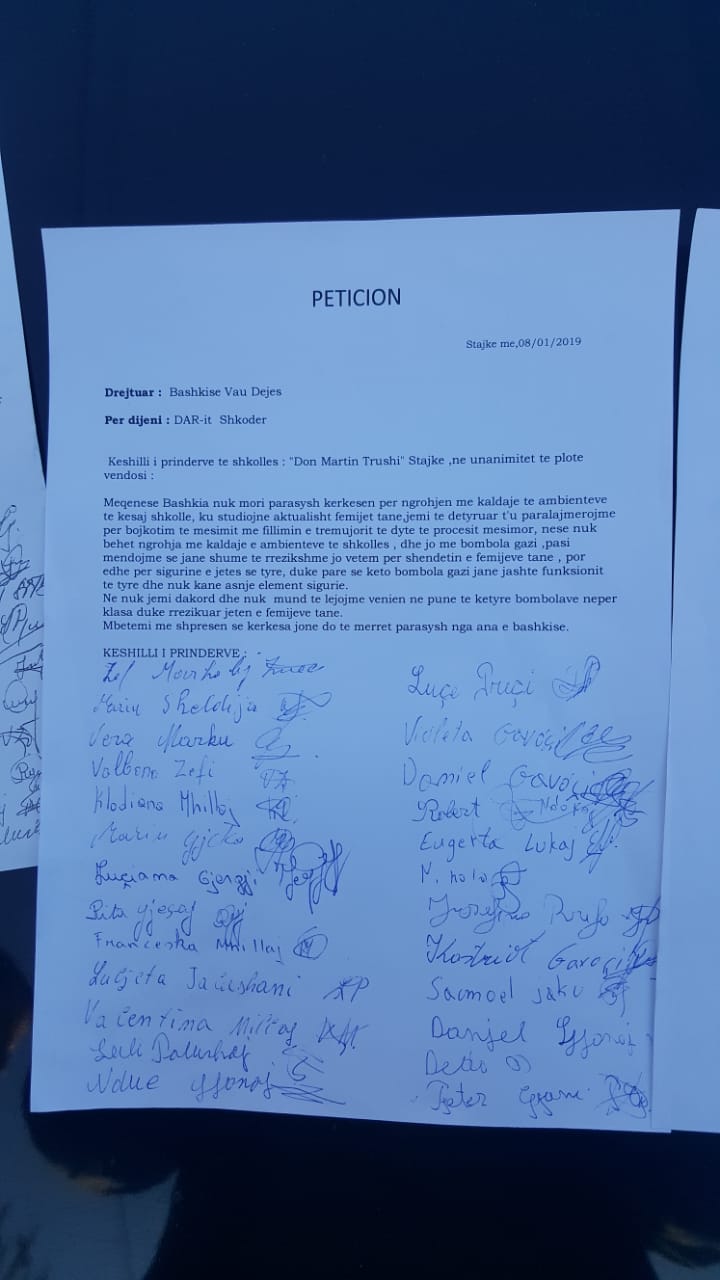 PETICION
Stajke me,08/01/2019
Drejtuar : Bashkise Vau Dejes
Per dijeni : DAR-it Shkoder
Keshilli i prinderve te shkolles : "Don Martin Trushi" Stajke ,ne unanimitet te plote
vendosi :
Meqenese Bashkia nuk mori parasysh kerkesen per ngrohjen me kaldaje te ambienteve
te kesaj shkolle, ku studiojne aktualisht femijet tane,jemi te detyruar t'u paralajmerojme
per bojkotim te mesimit me fillimin e tremujorit te dyte te procesit mesimor, nese nuk
behet ngrohja me kaldaje e ambienteve te shkolles , dhe jo me bombola gazi ,pasi
mendojme se jane shume te rrezikshme jo vetem per shendetin e femijeve tane , por
edhe per sigurine e jetes se tyre, duke pare se keto bombola gazi jane jashte funksionit
te tyre dhe nuk kane asnje element sigurie.
Ne nuk jemi dakord dhe nuk mund te lejojme venien ne pune te ketyre bombolave neper
klasa duke rrezikuar jeten e femijeve tane.
Mbetemi me shpresen se kerkesa jone do te merret parasysh nga ana e bashkise.
KESHILLI I PRINDERVE :
Zef
Luçe Pruçi
Violeta Gavoçi
Vera Marku
Valbona Zefi
Damiel Gavoçi
Klodiana Mhillaj
Robert Ndoka
Eugerta Lukaj
Luçiama Gjergji
Rita Gjegaj
Franceska Mhillaj
Gavoçi
Saomoel Jaku
Danjel Gjonaj
Ndue Gjonaj